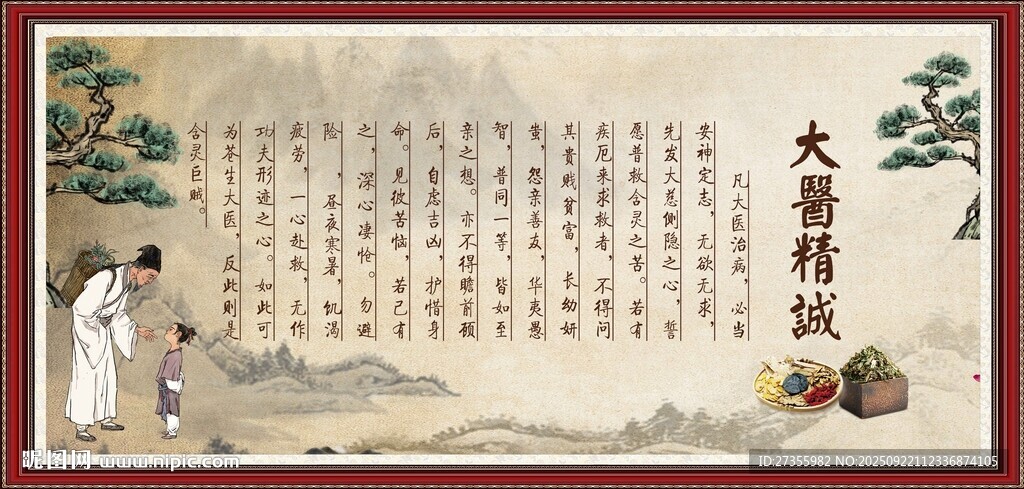 大醫精誠
凡大医治病，必当
安神定志，无欲无求，
先发大慈恻隐之心，誓
愿普救含灵之苦。若有
疾厄来求救者，不得问
其贵贱贫富，长幼妍
蚩，怨亲善友，华夷愚
智，普同一等，皆如至
亲之想。亦不得瞻前顾
后，自虑吉凶，护惜身
命。见彼苦恼，若己有
之，深心凄怆。勿避
险，昼夜寒暑，饥渴
疲劳，一心赴救，无作
功夫形迹之心。如此可
为苍生大医，反此则是
含灵巨贼。
昵图网 www.nipic.com
ID:27355982 NO:20250922112336874105